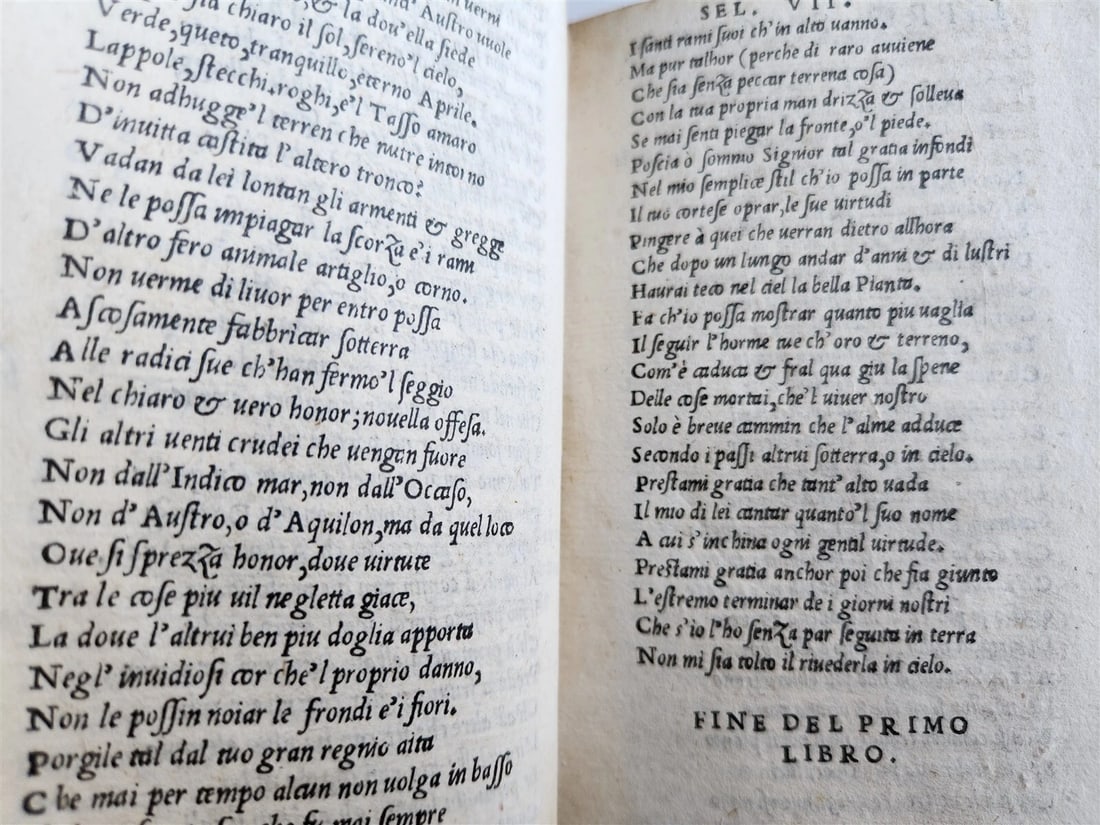 uerni
Austro uuole
chiaro il sol, sereno'l cielo,
& la dou'ella siede
Verde, queto, tranquillo, eterno Aprile.
Lappole, stecchi, roghi, e'l Tasso amaro
Non adhugge'l terren che nutre intorno
D'inuitta castita l'altero tronco?
Vadan da lei lontan gli armenti & gregge
Ne le possa impiagar la scorza e i rami
D'altro fero animale artiglio, o corno.
Non uerme di liuor per entro possa
Ascosamente fabbricar sotterra
Alle radici sue ch'han fermo'l seggio
Nel chiaro & uero honor; nouella offesa.
Gli altri uenti crudei che uengan fuore
Non dall'Indico mar, non dall'Occaso,
Non d'Austro, o d'Aquilon, ma da quel loco
Oue si sprezza honor, doue uirtute
Tra le cose piu uil negletta giace,
La doue l'altrui ben piu doglia apporta
Negl' inuidiosi cor che'l proprio danno,
Non le possin noiar le frondi e'i fiori.
Porgile tal dal tuo gran regnio aita
Che mai per tempo alcun non uolga in basso
mai sempre
SEL. VII.
I santi rami suoi ch'in alto uanno.
Ma pur talhor (perche di raro auuiene
Che sia senza peccar terrena cosa)
Con la tua propria man drizza & solleua
Se mai senti piegar la fronte, o'l piede.
Poscia ò sommo Signior tal gratia infondi
Nel mio semplice stil ch'io possa in parte
Il tuo cortese oprar, le sue uirtudi
Pingere à quei che uerran dietro allhora
Che dopo un lungo andar d'anni & di lustri
Haurai teco nel ciel la bella Pianta.
Fa ch'io possa mostrar quanto piu uaglia
Il seguir l'horme tue ch'oro & terreno,
Com'è caduca & fral qua giu la spene
Delle cose mortai, che'l uiuer nostro
Solo è breue cammin che l'alme adduce
Secondo i passi altrui sotterra, o in cielo.
Prestami gratia che tant'alto uada
Il mio di lei cantar quanto'l suo nome
A cui s'inchina ogni gentil uirtude.
Prestami gratia anchor poi che sia giunto
L'estremo terminar de i giorni nostri
Che s'io l'ho senza par seguita in terra
Non mi sia tolto il riuederla in cielo.
FINE DEL PRIMO
LIBRO.